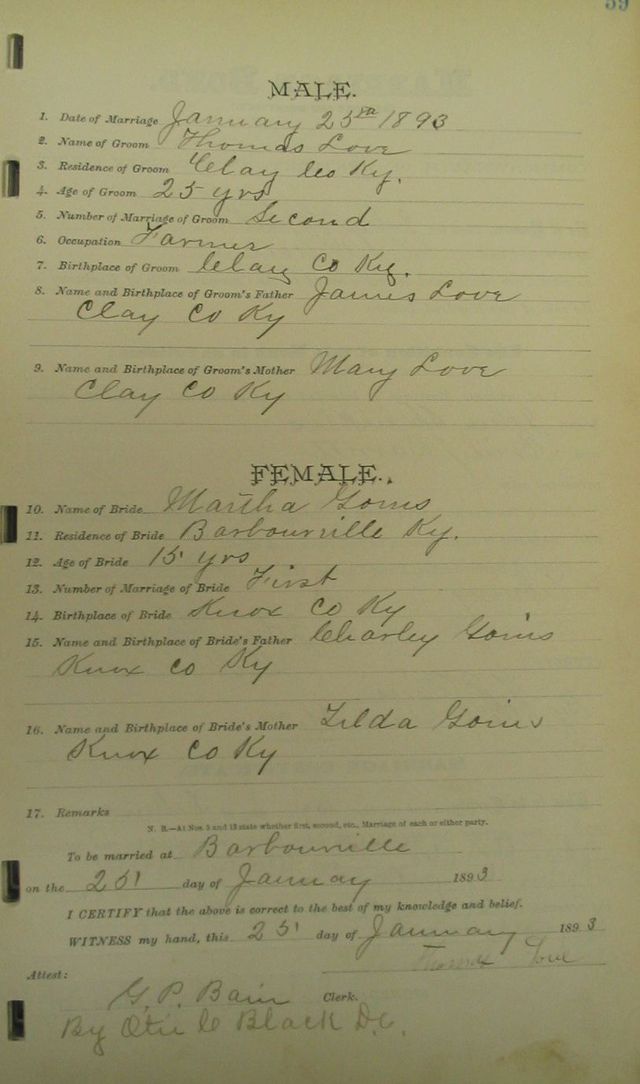 59
MALE.
1. Date of Marriage January 25th 1893
2. Name of Groom Thomas Love
3. Residence of Groom Clay Co Ky.
4. Age of Groom 25 yrs
5. Number of Marriage of Groom Second
6. Occupation Farmer
7. Birthplace of Groom Clay Co Ky.
8. Name and Birthplace of Groom's Father James Love
Clay Co Ky
9. Name and Birthplace of Groom's Mother Mary Love
Clay Co Ky
FEMALE.
10. Name of Bride Martha Goins
11. Residence of Bride Barbourville Ky.
12. Age of Bride 15 yrs
13. Number of Marriage of Bride First
14. Birthplace of Bride Knox Co Ky
15. Name and Birthplace of Bride's Father Charley Goins
Knox Co Ky
16. Name and Birthplace of Bride's Mother Tilda Goins
Knox Co Ky
17. Remarks
N. B.—At Nos. 5 and 13 state whether first, second, etc., Marriage of each or either party.
To be married at Barbourville
on the 25 day of January 1893
I CERTIFY that the above is correct to the best of my knowledge and belief.
WITNESS my hand, this 25 day of January 1893
Thomas Love
Attest:
G. P. Bain Clerk.
By Otis C Black D.C.